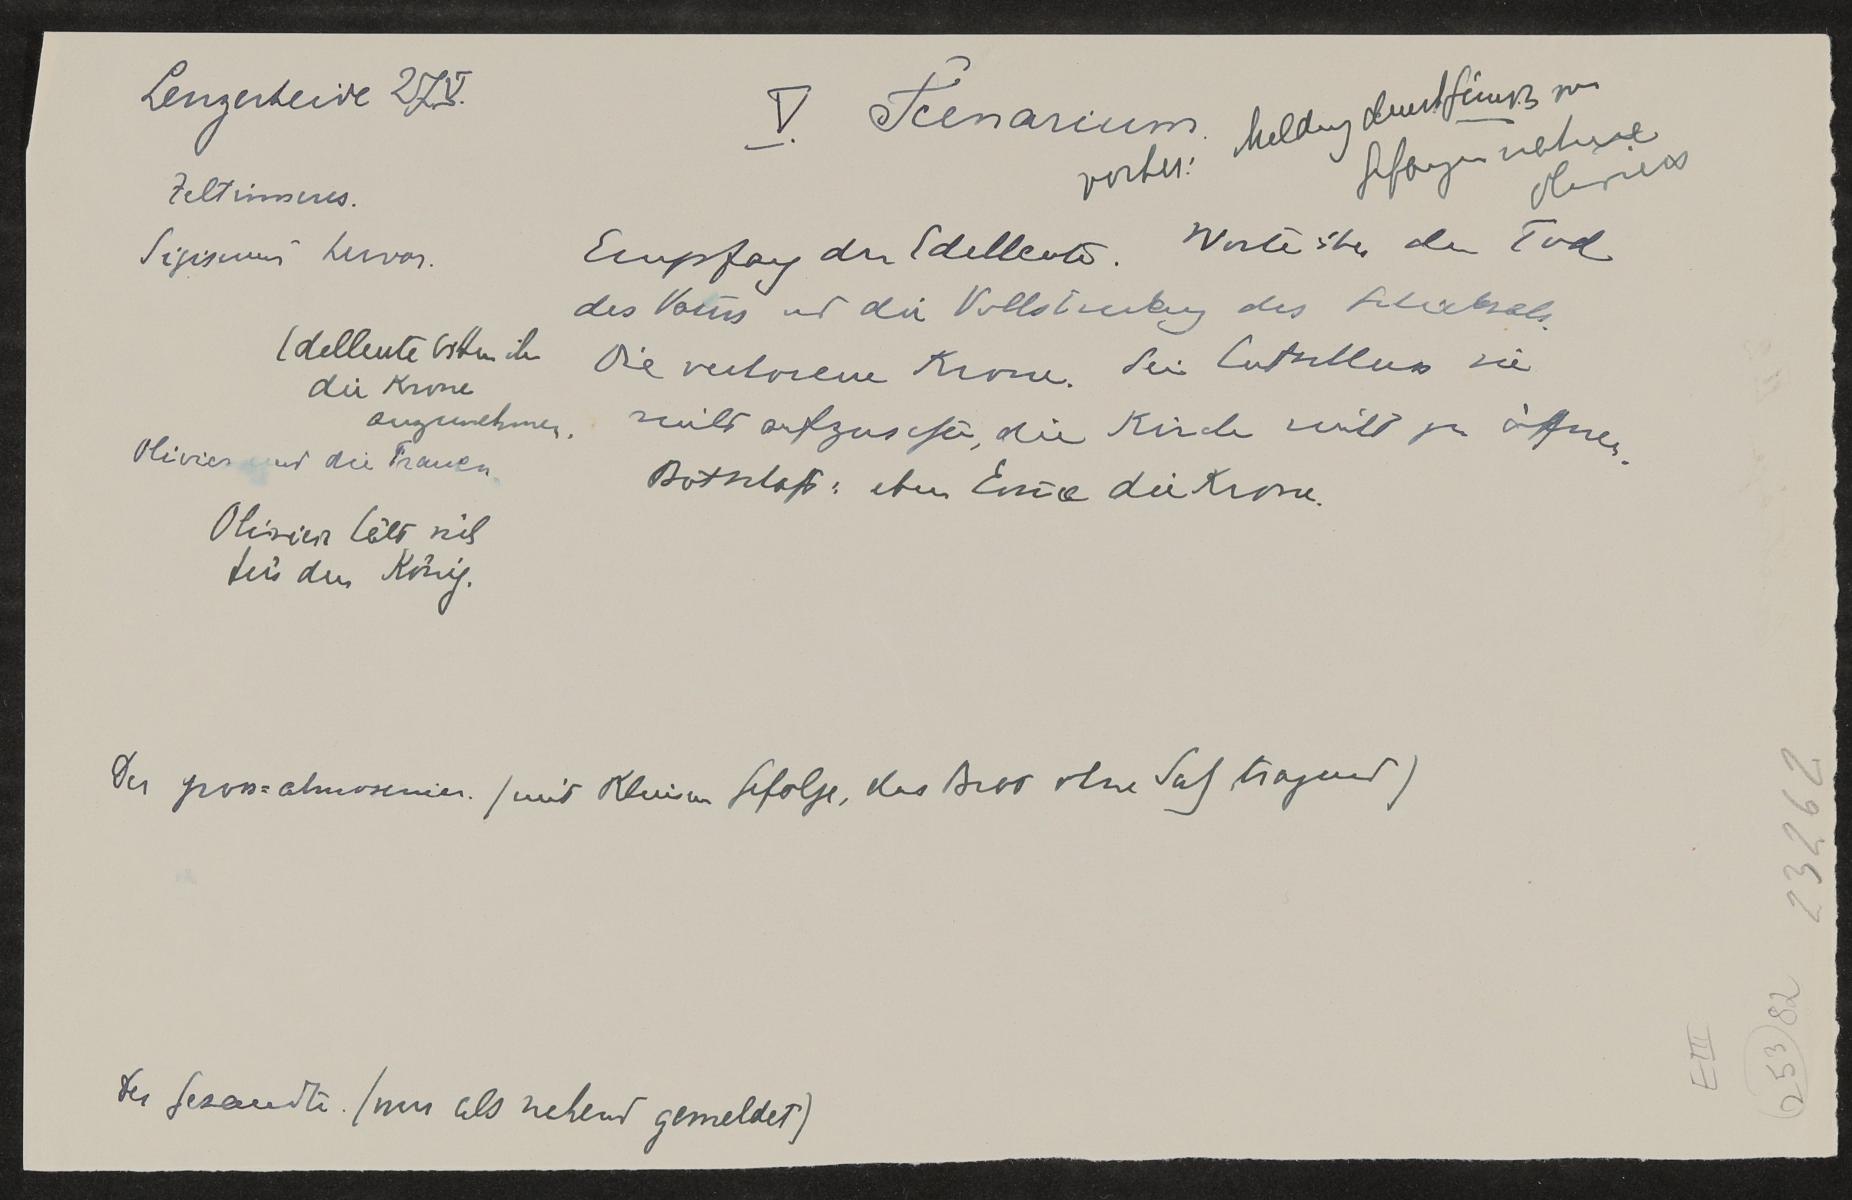 Lenzerheide 27 V.
V. Scenarium.
vorher: Meldung von
Gefangennahme
Oliviers
Zeltinneres.
Sigismund hervor.
Empfang der Edelleute. Worte über den Tod
des Vaters und die Vollstreckung des Schicksals.
Edelleute bitten ihn
die Krone
anzunehmen.
Die verlorene Krone. Sein Entschluss sie
nicht aufzusetzen, die Kirche nicht zu öffnen.
Olivier und die Frauen.
Botschaft: eben die Krone.
Olivier hält sich
für den König.
Der gross=almosenier. (mit kleinem Gefolge, das Brot ohne Salz tragend)
Der Gesandte. (nur als nahend gemeldet)
E III
253/82
23262